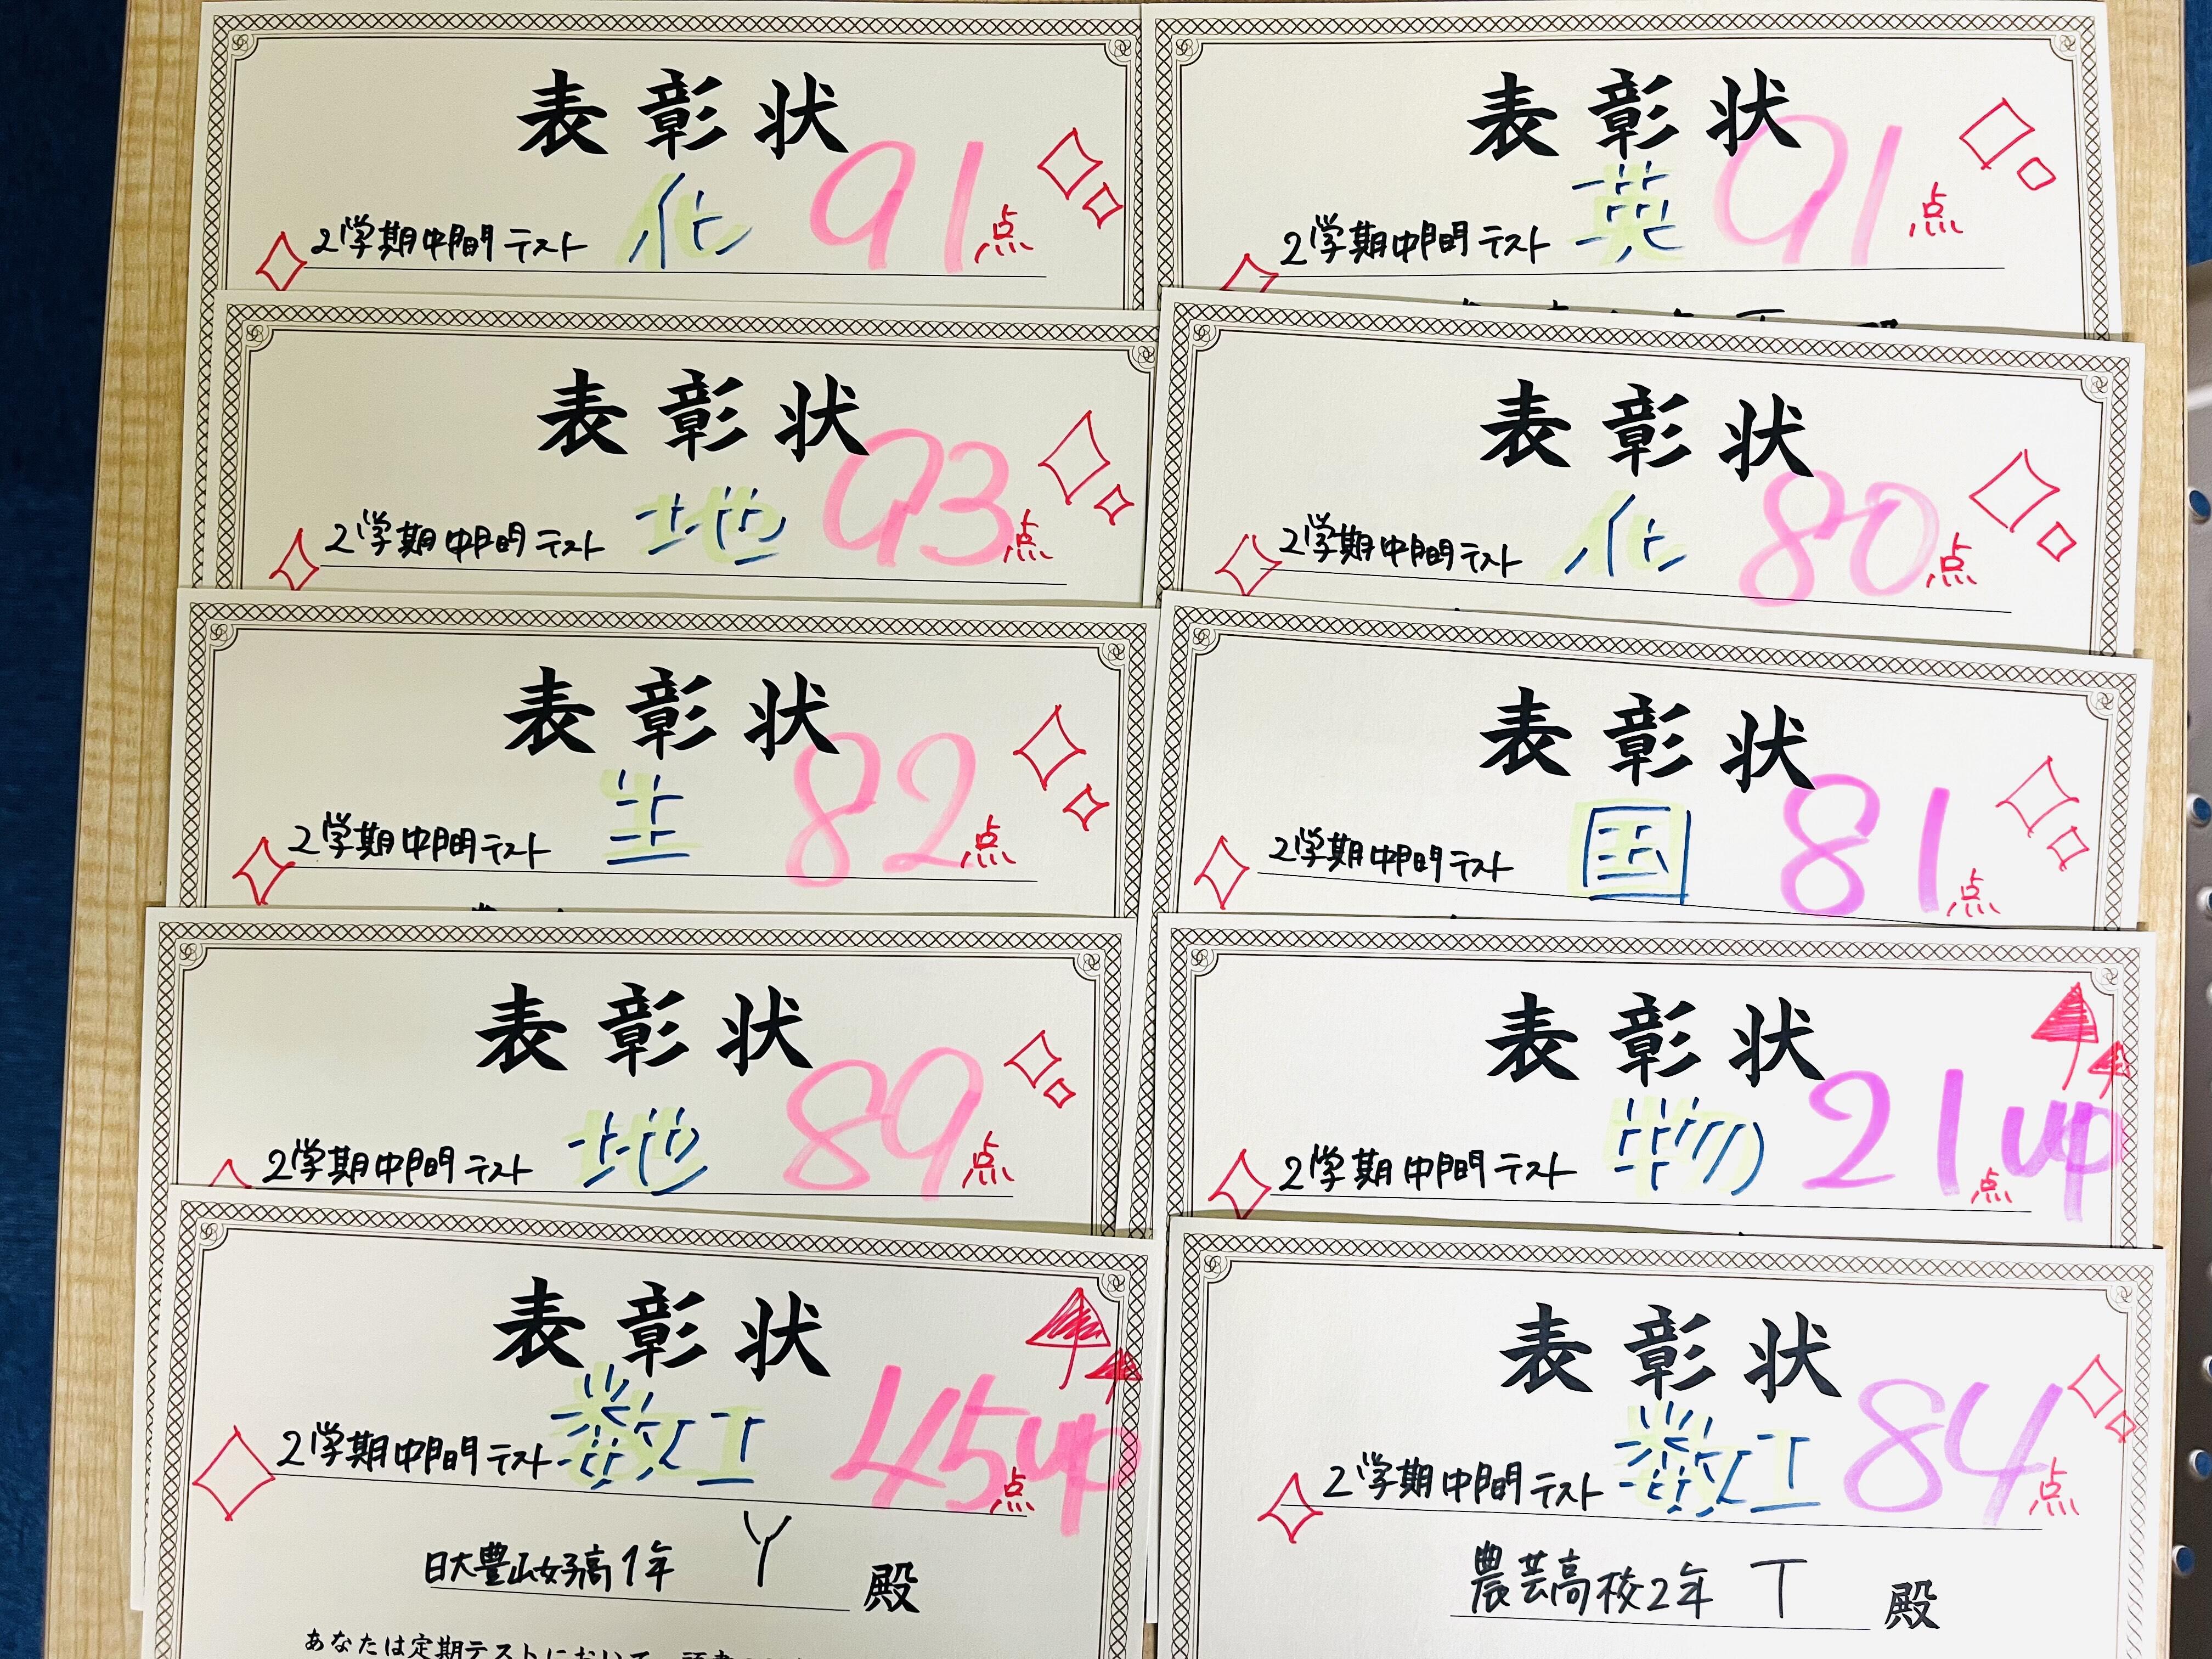 表彰状
2学期中間テスト 化 91点
表彰状
2学期中間テスト 地 93点
表彰状
2学期中間テスト 生 82点
表彰状
2学期中間テスト 地 89点
表彰状
2学期中間テスト 数I 45点up
日大豊山女子高1年 Y 殿
あなたは定期テストにおいて
表彰状
2学期中間テスト 英 91点
表彰状
2学期中間テスト 化 80点
表彰状
2学期中間テスト 国 81点
表彰状
2学期中間テスト 物 21点up
表彰状
2学期中間テスト 数I 84点
農芸高校2年 T 殿